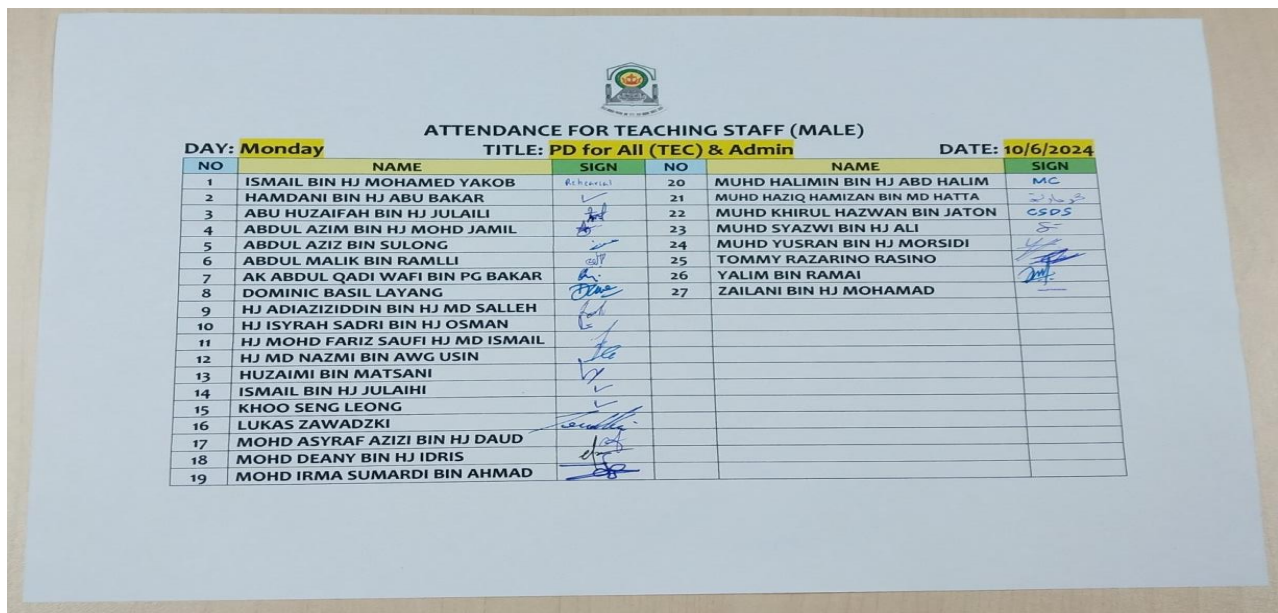 ATTENDANCE FOR TEACHING STAFF (MALE)
DAY: Monday TITLE: PD for All (TEC) & Admin DATE: 10/6/2024
NO NAME SIGN NO NAME SIGN
1 ISMAIL BIN HJ MOHAMED YAKOB Rehearsal 20 MUHD HALIMIN BIN HJ ABD HALIM MC
2 HAMDANI BIN HJ ABU BAKAR 21 MUHD HAZIQ HAMIZAN BIN MD HATTA
3 ABU HUZAIFAH BIN HJ JULAILI 22 MUHD KHIRUL HAZWAN BIN JATON CSDS
4 ABDUL AZIM BIN HJ MOHD JAMIL 23 MUHD SYAZWI BIN HJ ALI
5 ABDUL AZIZ BIN SULONG 24 MUHD YUSRAN BIN HJ MORSIDI
6 ABDUL MALIK BIN RAMLLI 25 TOMMY RAZARINO RASINO
7 AK ABDUL QADI WAFI BIN PG BAKAR 26 YALIM BIN RAMAI
8 DOMINIC BASIL LAYANG 27 ZAILANI BIN HJ MOHAMAD
9 HJ ADIAZIZIDDIN BIN HJ MD SALLEH
10 HJ ISYRAH SADRI BIN HJ OSMAN
11 HJ MOHD FARIZ SAUFI HJ MD ISMAIL
12 HJ MD NAZMI BIN AWG USIN
13 HUZAIMI BIN MATSANI
14 ISMAIL BIN HJ JULAIHI
15 KHOO SENG LEONG
16 LUKAS ZAWADZKI
17 MOHD ASYRAF AZIZI BIN HJ DAUD
18 MOHD DEANY BIN HJ IDRIS
19 MOHD IRMA SUMARDI BIN AHMAD